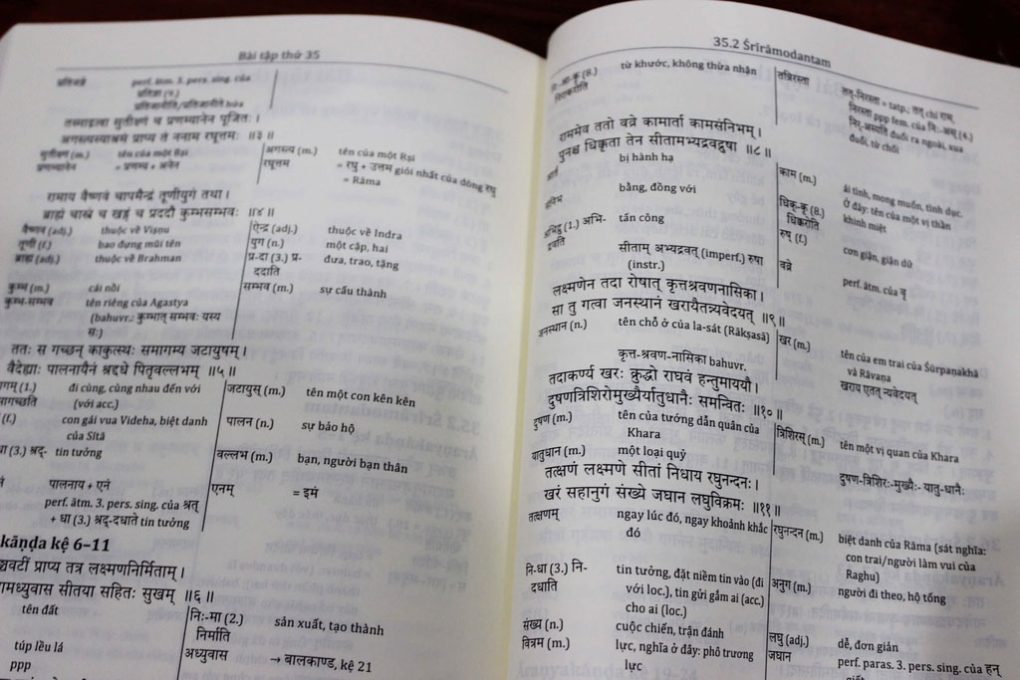 Bài tập thứ 35
perf. ātm. 3. pers. sing. của
प्रतिज्ञा (९.)
प्रतिजानीति/प्रतिजानीते hứa
अगस्त्यस्याश्रमं प्राप्य तं ननाम रघूत्तमः ॥३॥
सुतीक्ष्ण (m.) tên của một Ṛṣi
अगस्त्य (m.) tên của một Ṛṣi
रघूत्तम = रघु + उत्तम giỏi nhất của dòng रघु
= Rāma
रामाय वैष्णवं चापमैन्द्रं तूणीयुगं तथा।
ब्राह्मं चास्त्रं च खड्गं च प्रददौ कुम्भसम्भवः ॥४॥
वैष्णव (adj.) thuộc về Viṣṇu
तूणी (f.) bao đựng mũi tên
ब्राह्म (adj.) thuộc về Brahman
कुम्भ (m.) cái nồi
कुम्भ-सम्भव tên riêng của Agastya
(bahuvr.: कुम्भात् सम्भवः यस्य
सः)
ऐन्द्र (adj.) thuộc về Indra
युग (n.) một cặp, hai
प्र-दा (3.) प्र- đưa, trao, tặng
ददाति
सम्भव (m.) sự cấu thành
ततः स गच्छन् काकुत्स्थः समागम्य जटायुषम्।
वैदेह्याः पालनायैनं श्रद्दधे पितृवल्लभम् ॥५॥
đi cùng, cùng nhau đến với
(với acc.)
con gái vua Videha, biệt danh
của Sītā
(3.) श्रद्- tin tưởng
पालनाय + एनं
perf. ātm. 3. pers. sing. của श्रत्
+ धा (3.) श्रद्-दधाते tin tưởng
जटायुस् (m.) tên một con kên kên
पालन (n.) sự bảo hộ
वल्लभ (m.) bạn, người bạn thân
एनम् = इमं
kāṇḍa kệ 6–11
वटीं प्राप्य तत्र लक्ष्मणनिर्मिताम्।
मध्युवास सीतया सहितः सुखम् ॥६॥
tên đất
túp lều lá
ppp
निः-मा (2.) sản xuất, tạo thành
निर्माति
अध्युवास → बालकाण्ड, kệ 21
35.2 Śrīrāmodantam
निः-आ-कृ (8.) từ khước, không thừa nhận
निराकरोति
तन्निरस्ता तत्-निरस्ता = tatp.; तत् chỉ राम,
निरस्ता ppp fem. của निः-अस् (4.)
निर्-अस्यति đuổi ra ngoài, xua
đuổi, từ chối
राममेव ततो वव्रे कामार्ता कामसंनिभम्।
पुनश्च धिक्कृता तेन सीतामभ्यद्रवद्रुषा ॥८॥
bị hành hạ
bằng, đồng với
अभिद्रु (1.) अभि- tấn công
द्रवति
सीताम् अभ्यद्रवत् (imperf.) रुषा
(instr.)
काम (m.) ái tình, mong muốn, tình dục.
Ở đây: tên của một vị thần
धिक्-कृ (8.) khinh miệt
धिक्करोति
रुष् (f.) cơn giận, giận dữ
वव्रे perf. ātm. của वृ
लक्ष्मणेन तदा रोषात् कृत्तश्रवणनासिका।
सा तु गत्वा जनस्थानं खरायैतन्न्यवेदयत् ॥९॥
जनस्थान (n.) tên chỗ ở của la-sát (Rākṣasā)
कृत्त-श्रवण-नासिका bahuvr.
खर (m.) tên của em trai của Śūrpaṇakhā
và Rāvaṇa
खराय एतत् न्यवेदयत्
तदाकर्ण्य खरः क्रुद्धो राघवं हन्तुमाययौ।
दुषणत्रिशिरोमुख्यैर्यातुधानैः समन्वितः ॥१०॥
दुषण (m.) tên của tướng dẫn quân của
Khara
यातुधान (m.) một loại quỷ
त्रिशिरस् (m.) tên một vị quan của Khara
दुषण-त्रिशिरः-मुख्यैः- यातु-धानैः
तत्क्षणं लक्ष्मणे सीतां निधाय रघुनन्दनः।
खरं सहानुगं संख्ये जघान लघुविक्रमः ॥११॥
तत्क्षणम् ngay lúc đó, ngay khoảnh khắc
đó
नि-धा (3.) नि- tin tưởng, đặt niềm tin vào (đi
दधाति với loc.), tin gửi gắm ai (acc.)
cho ai (loc.)
संख्य (n.) cuộc chiến, trận đánh
वित्रम (m.) lực, nghĩa ở đây: phô trương
lực
रघुनन्दन (m.) biệt danh của Rāma (sát nghĩa:
con trai/người làm vui của
Raghu)
अनुग (m.) người đi theo, hộ tống
लघु (adj.) dễ, đơn giản
जघान perf. paras. 3. pers. sing. của हन्